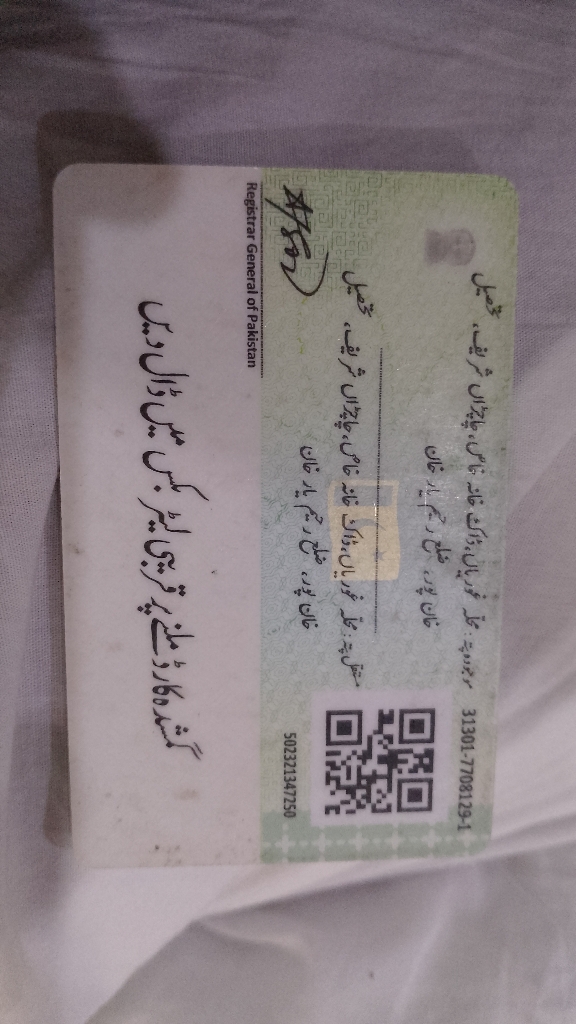 31301-7708129-1
موجودہ پتہ: محلہ غوریاں، ڈاک خانہ خاص، چاچڑاں شریف، تحصیل
خان پور، ضلع رحیم یار خان
مستقل پتہ: محلہ غوریاں، ڈاک خانہ خاص، چاچڑاں شریف، تحصیل
خان پور، ضلع رحیم یار خان
502321347250
Registrar General of Pakistan
گمشدہ کارڈ ملنے پر قریبی لیٹر بکس میں ڈال دیں